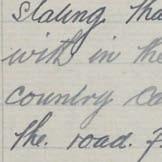 stating tha
with in the
country ca
the. road. f